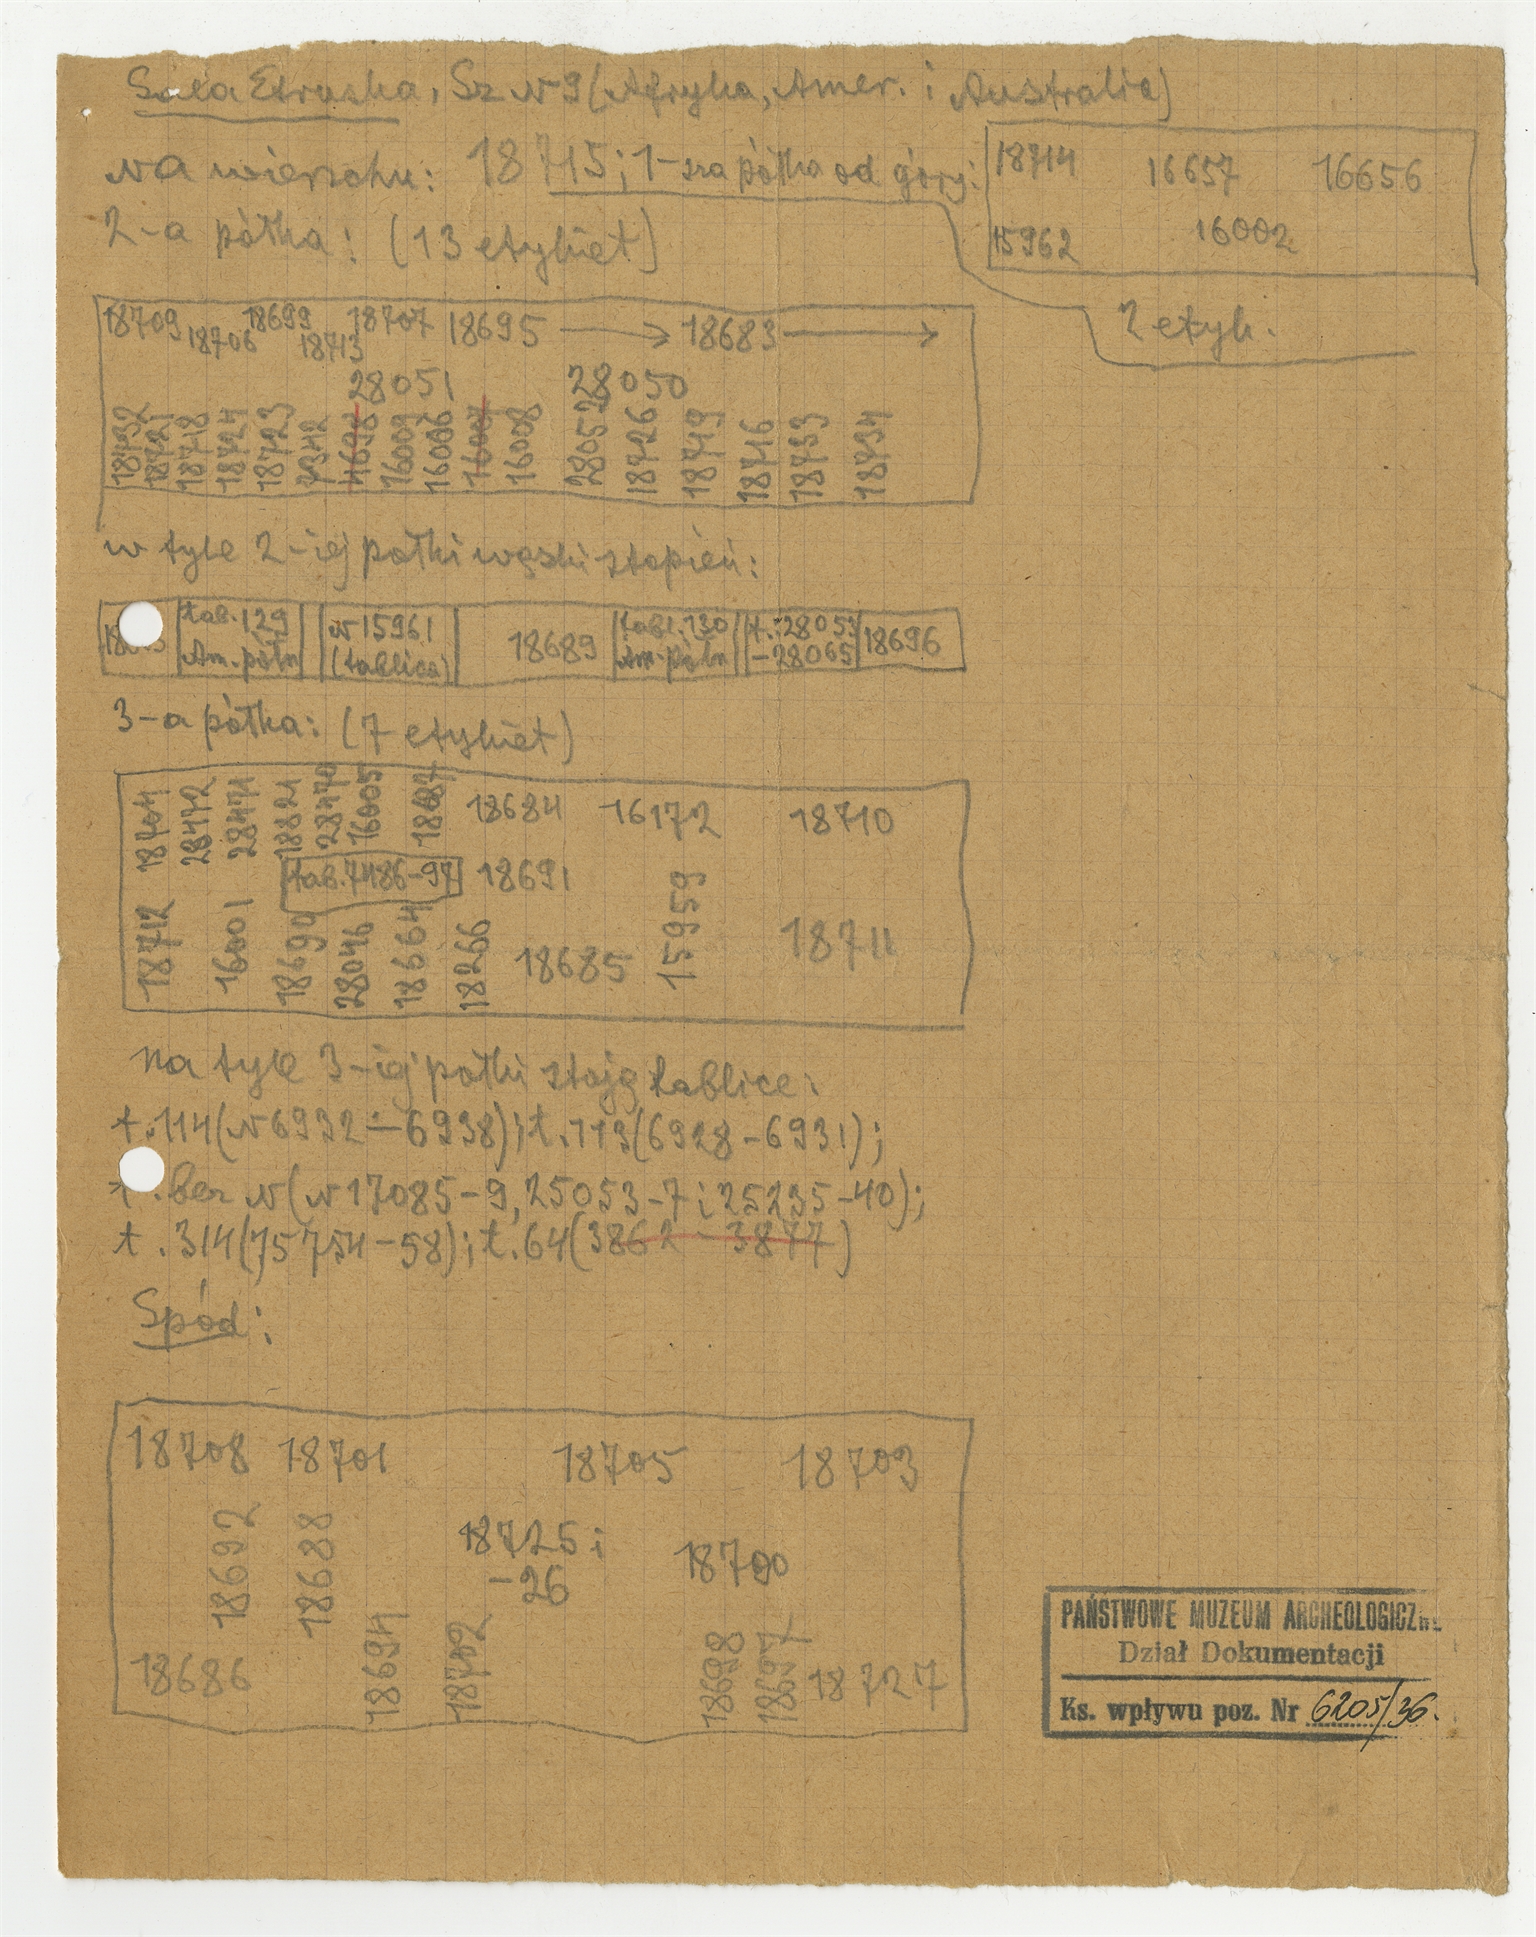 Sala Etruska, Sz N 9 (Afryka, Amer. i Australia)
na wierzchu: 18715; 1-sza półka od góry:
18714 16657 16656
15962 16002
2 etyk.
2-a półka: (13 etykiet)
18709 18706 18699 18713 18707 18695 → 18683 →
28051 28050
18732 18721 18718 18724 18723 7342 16009 16006 16007 16008 28052 18726 18719 18716 18733 18734
w tyle 2-iej półki wąski stopień:
tab. 129
Am. półn
N 15961
(tablica)
18689
tabl. 130
Am. półn
t.: 28053
-28065
18696
3-a półka: (7 etykiet)
18704 28472 28471 18821 28470 16005 18687 18684 16172 18710
tab. 7486-97 18691
18712 16001 18690 28046 18664 18266 18685 15959 18711
na tyle 3-iej półki stoją tablice:
t. 114 (N 6932-6938); t. 113 (6928-6931);
t. bez N (N 17085-9, 25053-7 i 25235-40);
t. 314 (75754-58); t. 64 (3862-3877)
Spód:
18708 18701 18705 18703
18692 18688 18725 i
-26
18700
18686 18694 18702 18698 18697 18727
PAŃSTWOWE MUZEUM ARCHEOLOGICZNE
Dział Dokumentacji
Ks. wpływu poz. Nr 6205/36.